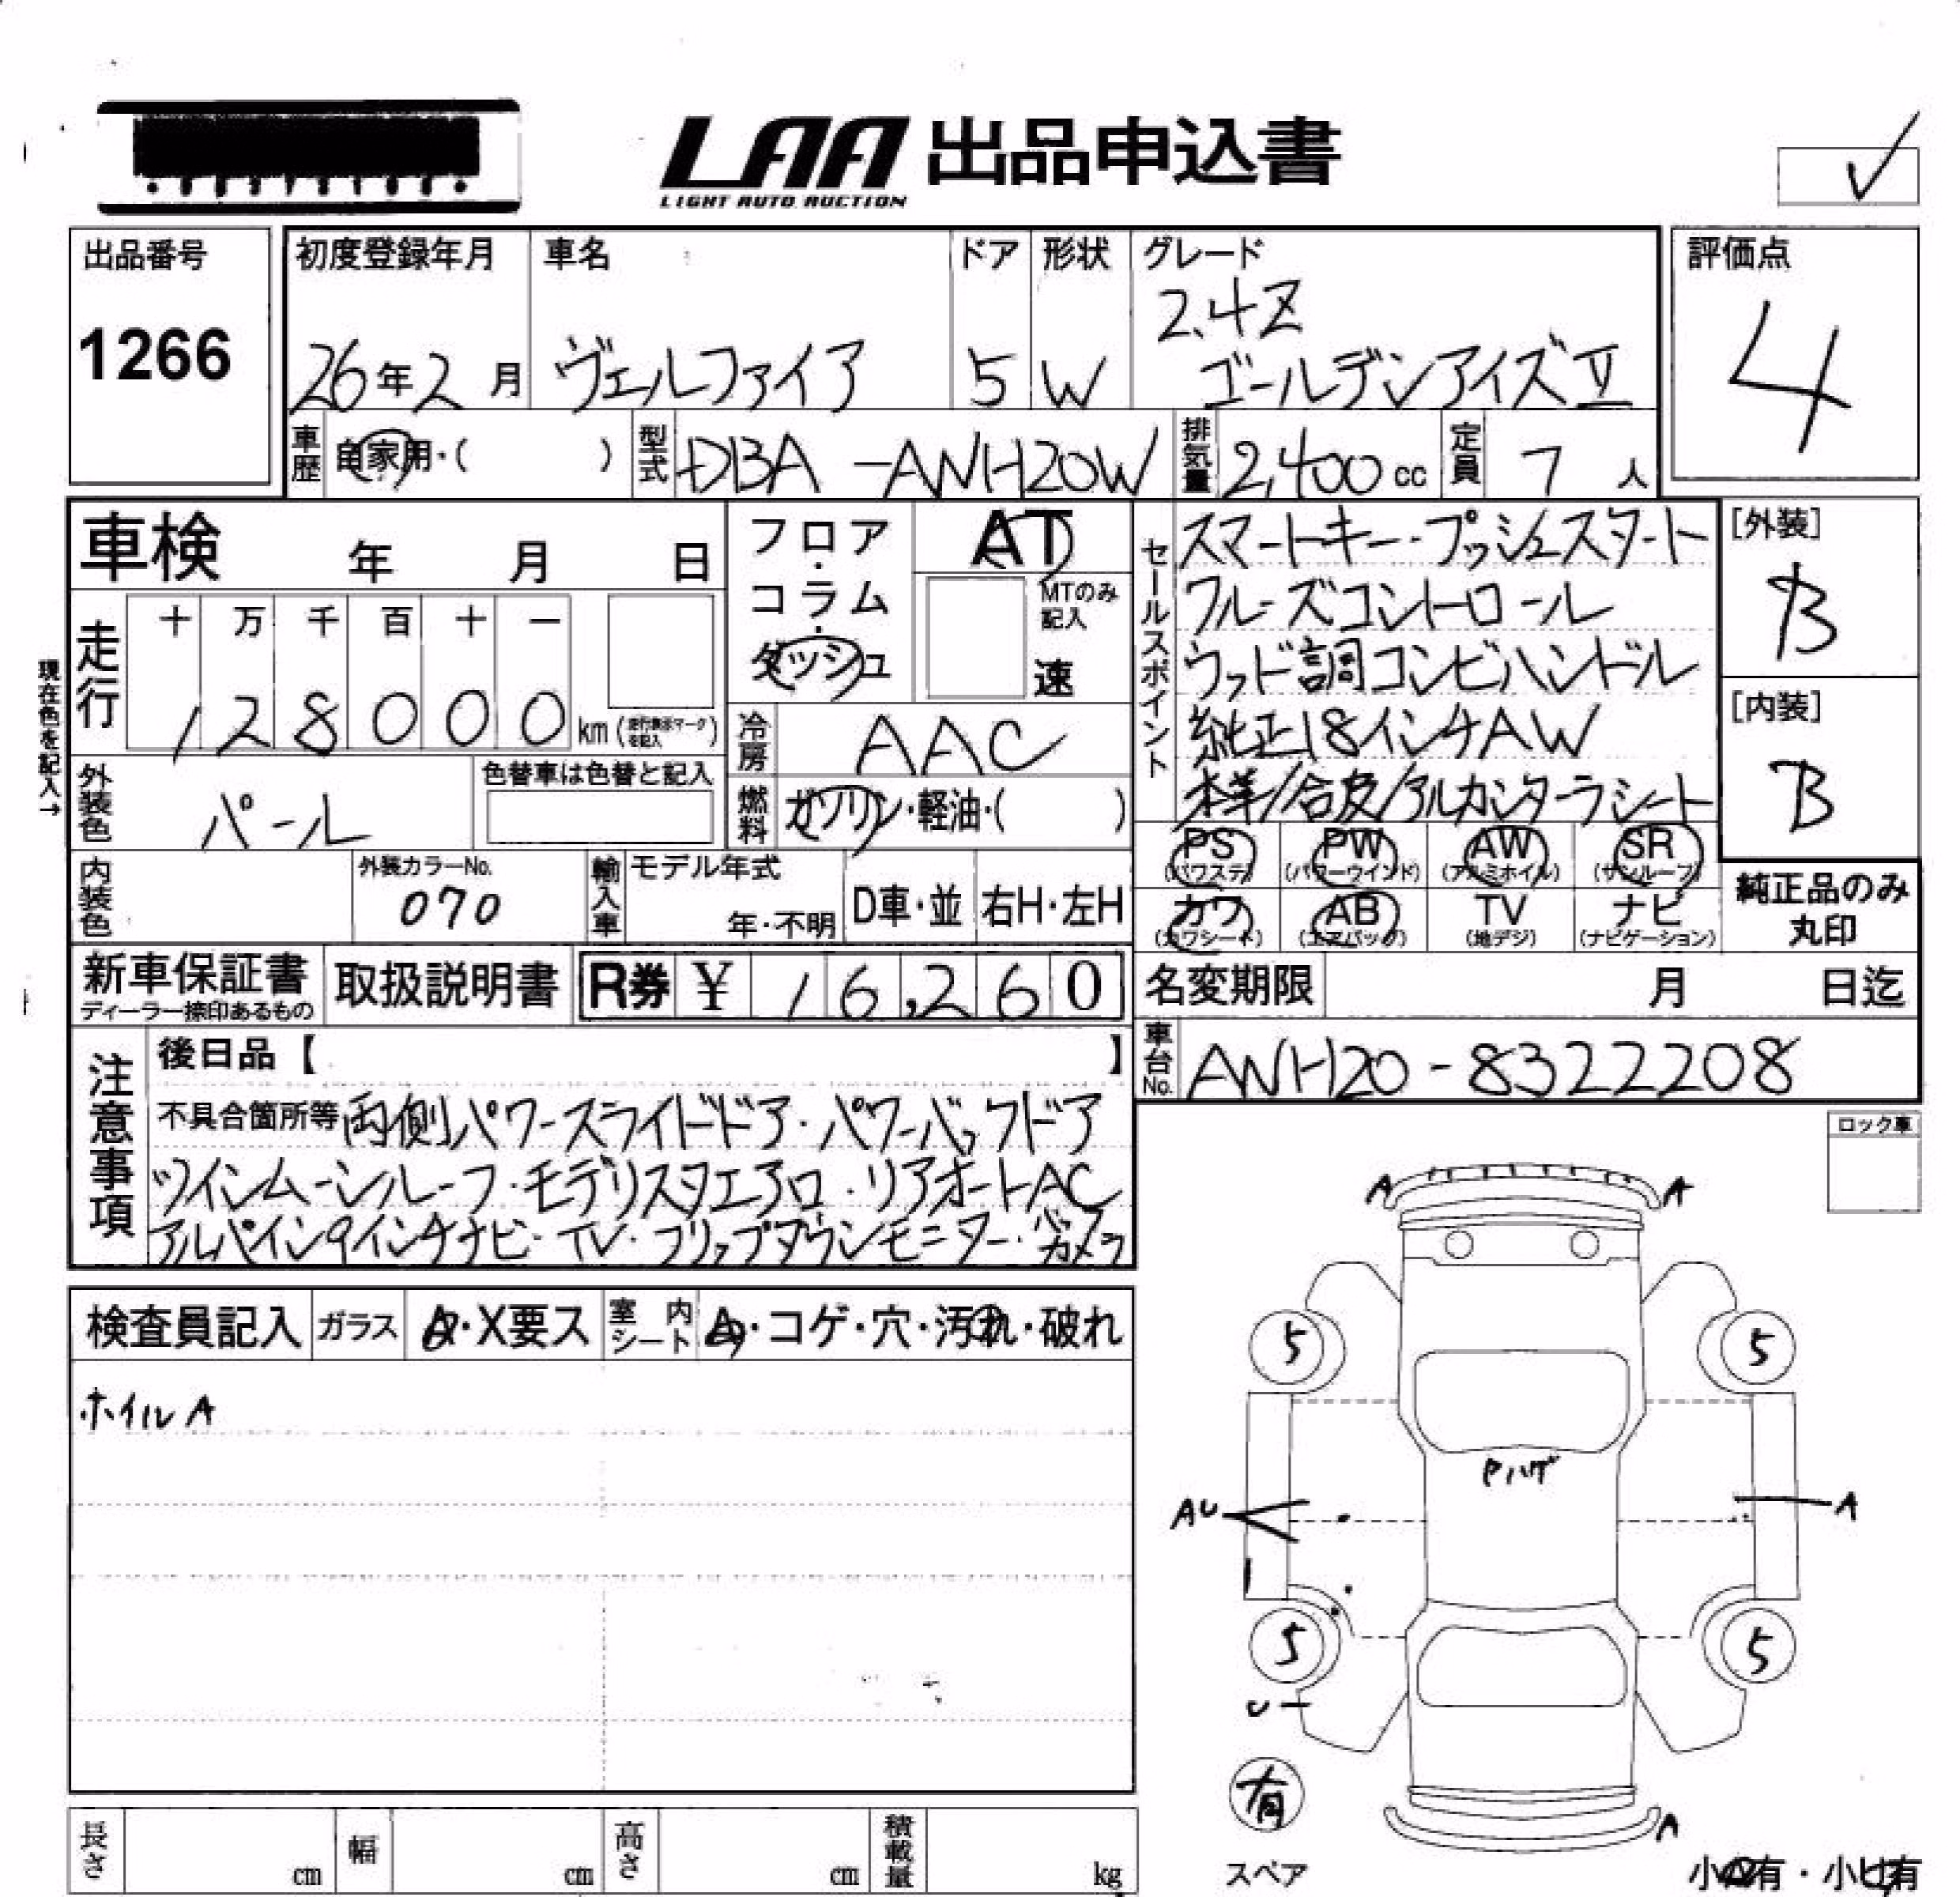 LAA 出品申込書
LIGHT AUTO AUCTION
出品番号
1266
初度登録年月
26年2月
車名
ヴェルファイア
ドア
5
形状
W
グレード
2.4Z
ゴールデンアイズⅡ
評価点
4
車歴
自家用・( )
型式
DBA-ANH20W
排気量
2,400cc
定員
7人
車検 年 月 日
フロア・コラム・ダッシュ
AT
MTのみ記入
速
セールスポイント
スマートキー・プッシュスタート
クルーズコントロール
ウッド調コンビハンドル
純正18インチAW
本革/合皮/アルカンターラシート
[外装]
B
[内装]
B
現在色を記入→
走行
十 万 千 百 十 一
128000 km(走行表示マークを記入)
冷房
AAC
外装色
パール
色替車は色替と記入
燃料
ガソリン・軽油・( )
PS (パワステ)
PW (パワーウインド)
AW (アルミホイル)
SR (サンルーフ)
カワ (カワシート)
AB (エアバッグ)
TV (地デジ)
ナビ (ナビゲーション)
純正品のみ丸印
内装色
外装カラーNo.
070
輸入車
モデル年式
年・不明
D車・並
右H・左H
新車保証書
ディーラー捺印あるもの
取扱説明書
R券 ¥ 16,260
名変期限 月 日迄
車台No.
ANH20-8322208
注意事項
後日品【 】
不具合箇所等 両側パワースライドドア・パワーバックドア
ツインムーンルーフ・モデリスタエアロ・リアオートAC
アルパイン9インチナビ・TV・フリップダウンモニター・Bカメラ
ロック車
検査員記入
ガラス
・X要ス
室内シート
・コゲ・穴・汚れ・破れ
ホイルA
A A
5 5
Pハゲ
AU A
5 5
U
有
スペア
A
小 有・小 有
長さ cm
幅 cm
高さ cm
積載量 kg